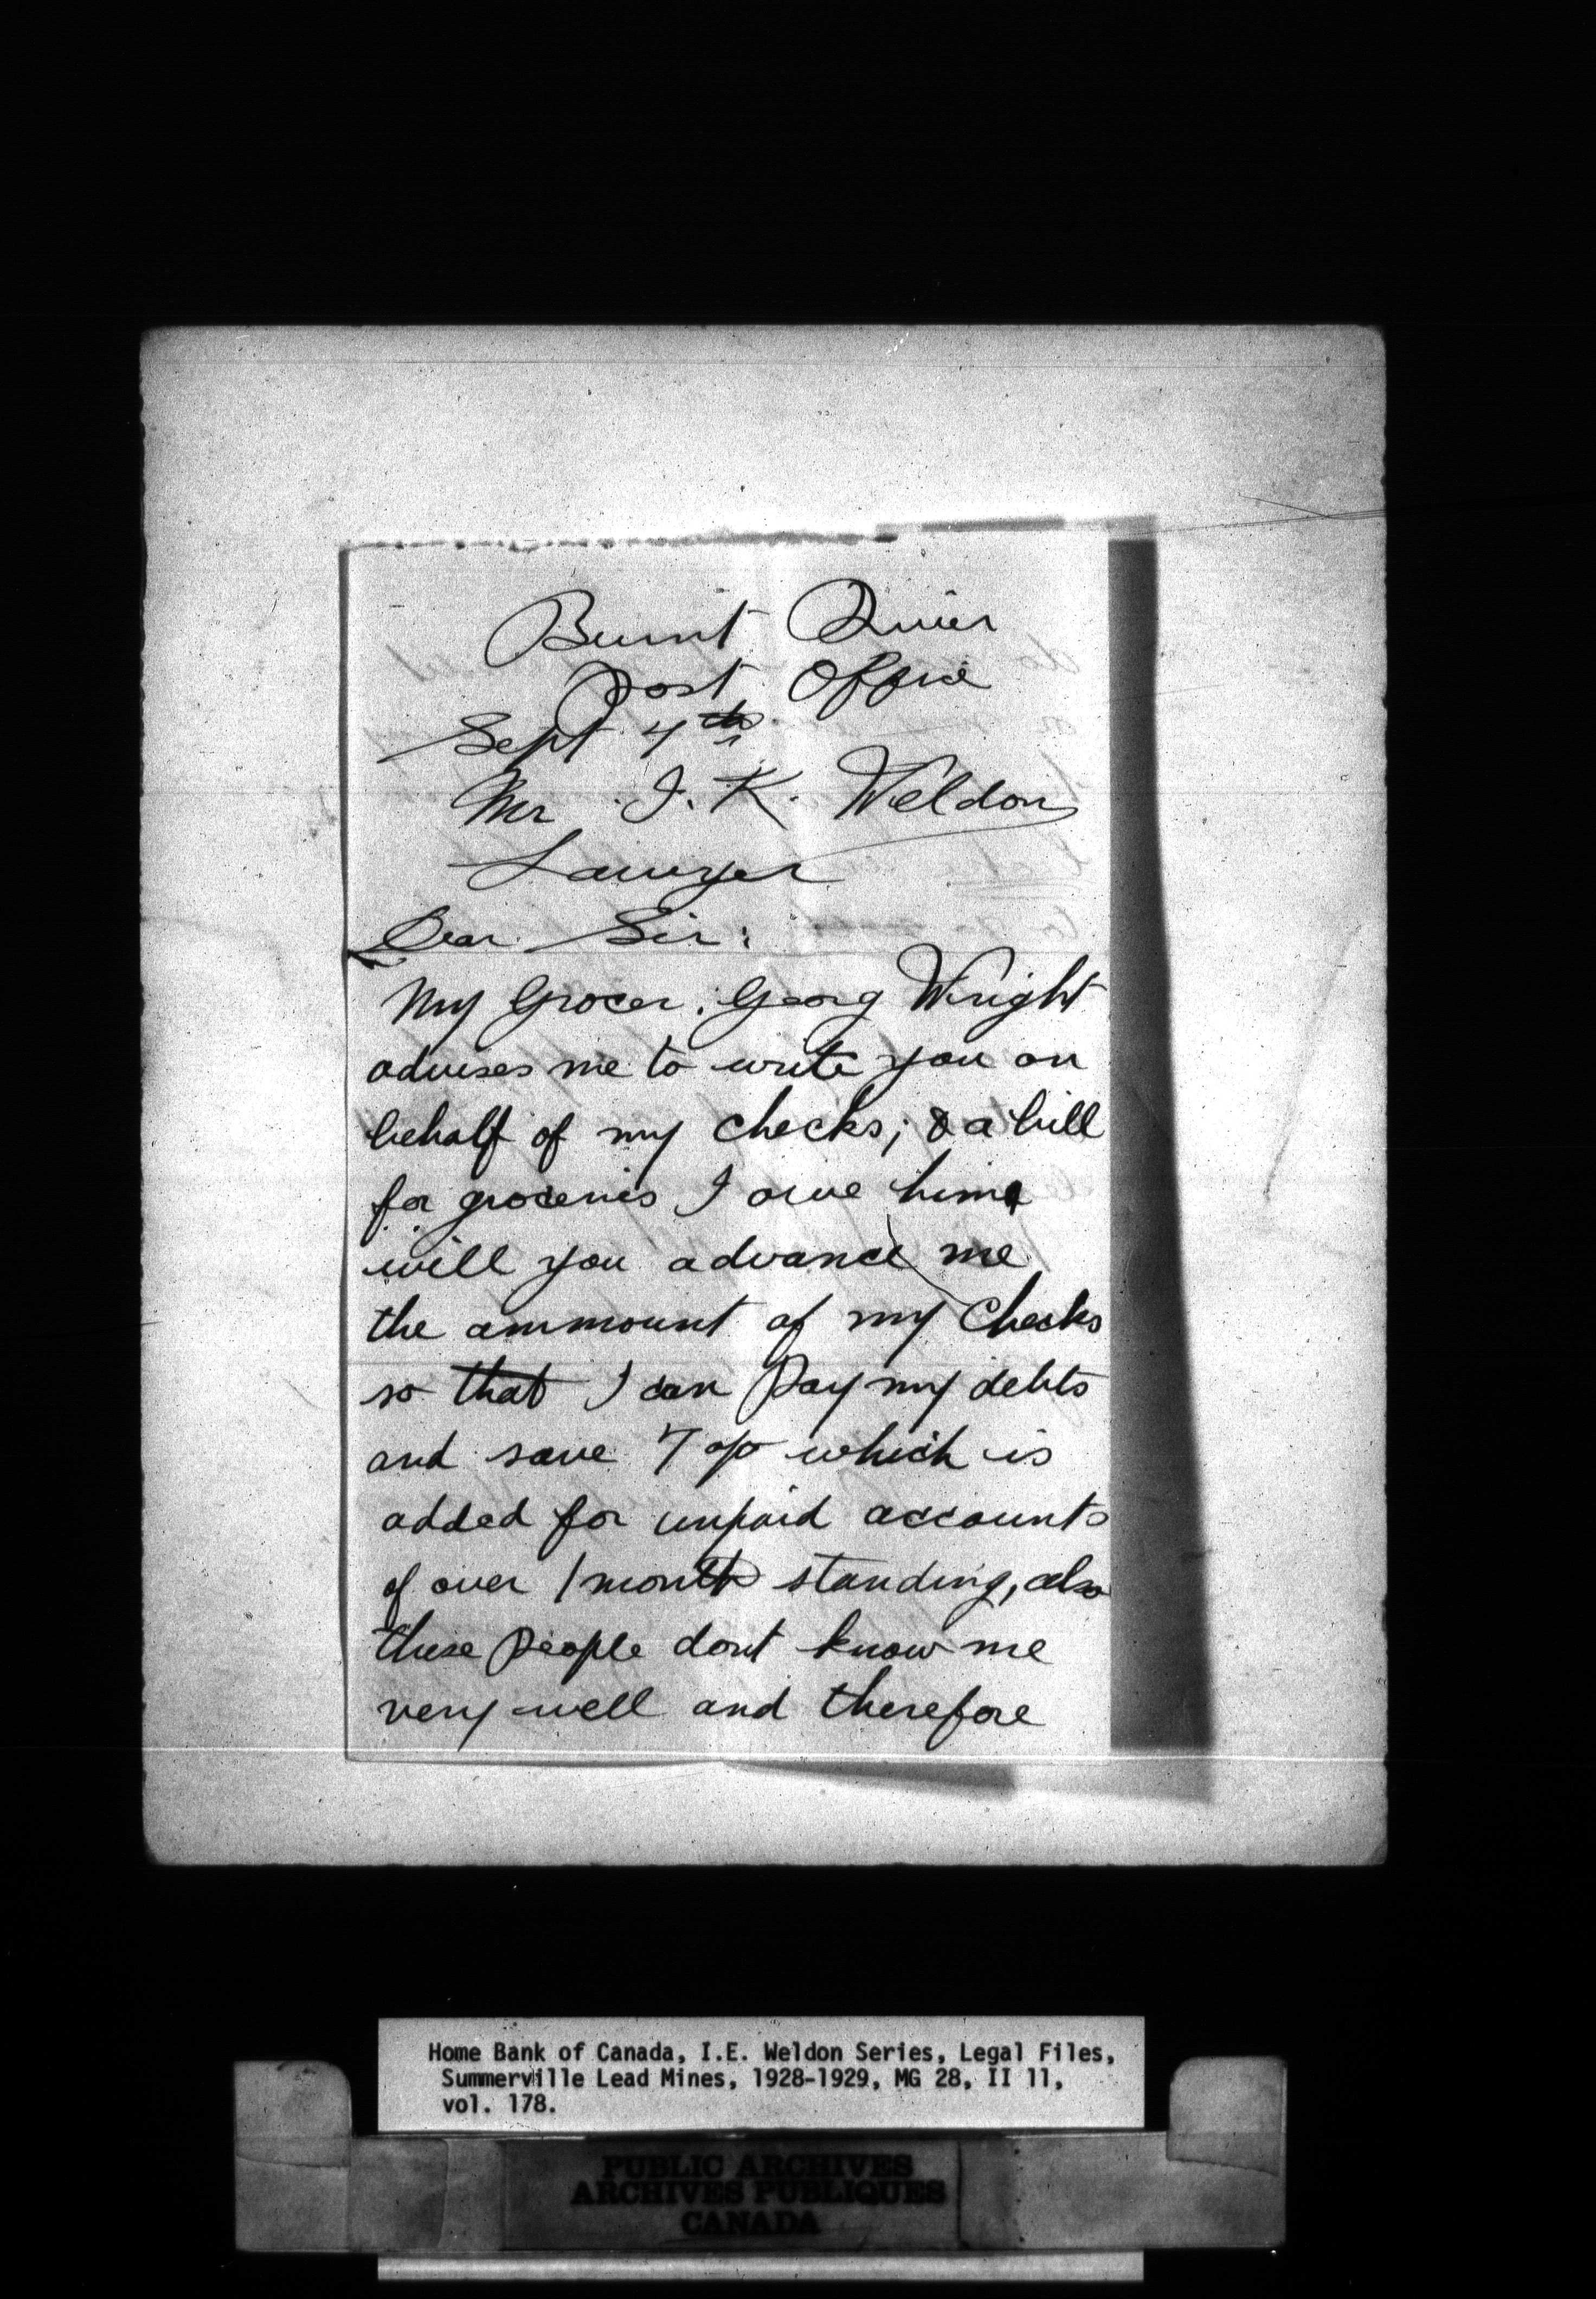 Burnt River
Post Office
Sept 4th
Mr. I. K. Weldon
Lawyer
Dear Sir:
My Grocer; Georg Wright
advises me to write you on
behalf of my checks; & a bill
for groceries I owe him,
will you advance me
the ammount of my Checks
so that I can Pay my debts
and save 7 % which is
added for unpaid accounts
of over 1 month standing, also
these people dont know me
very well and therefore
Home Bank of Canada, I.E. Weldon Series, Legal Files,
Summerville Lead Mines, 1928-1929, MG 28, II 11,
vol. 178.
PUBLIC ARCHIVES
ARCHIVES PUBLIQUES
CANADA